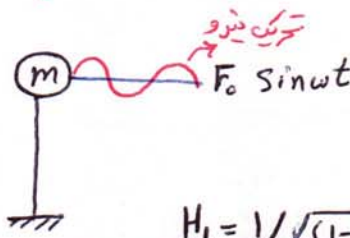 تحریک نیرو
m
F₀ Sinωt
H₁ = 1/√(1-